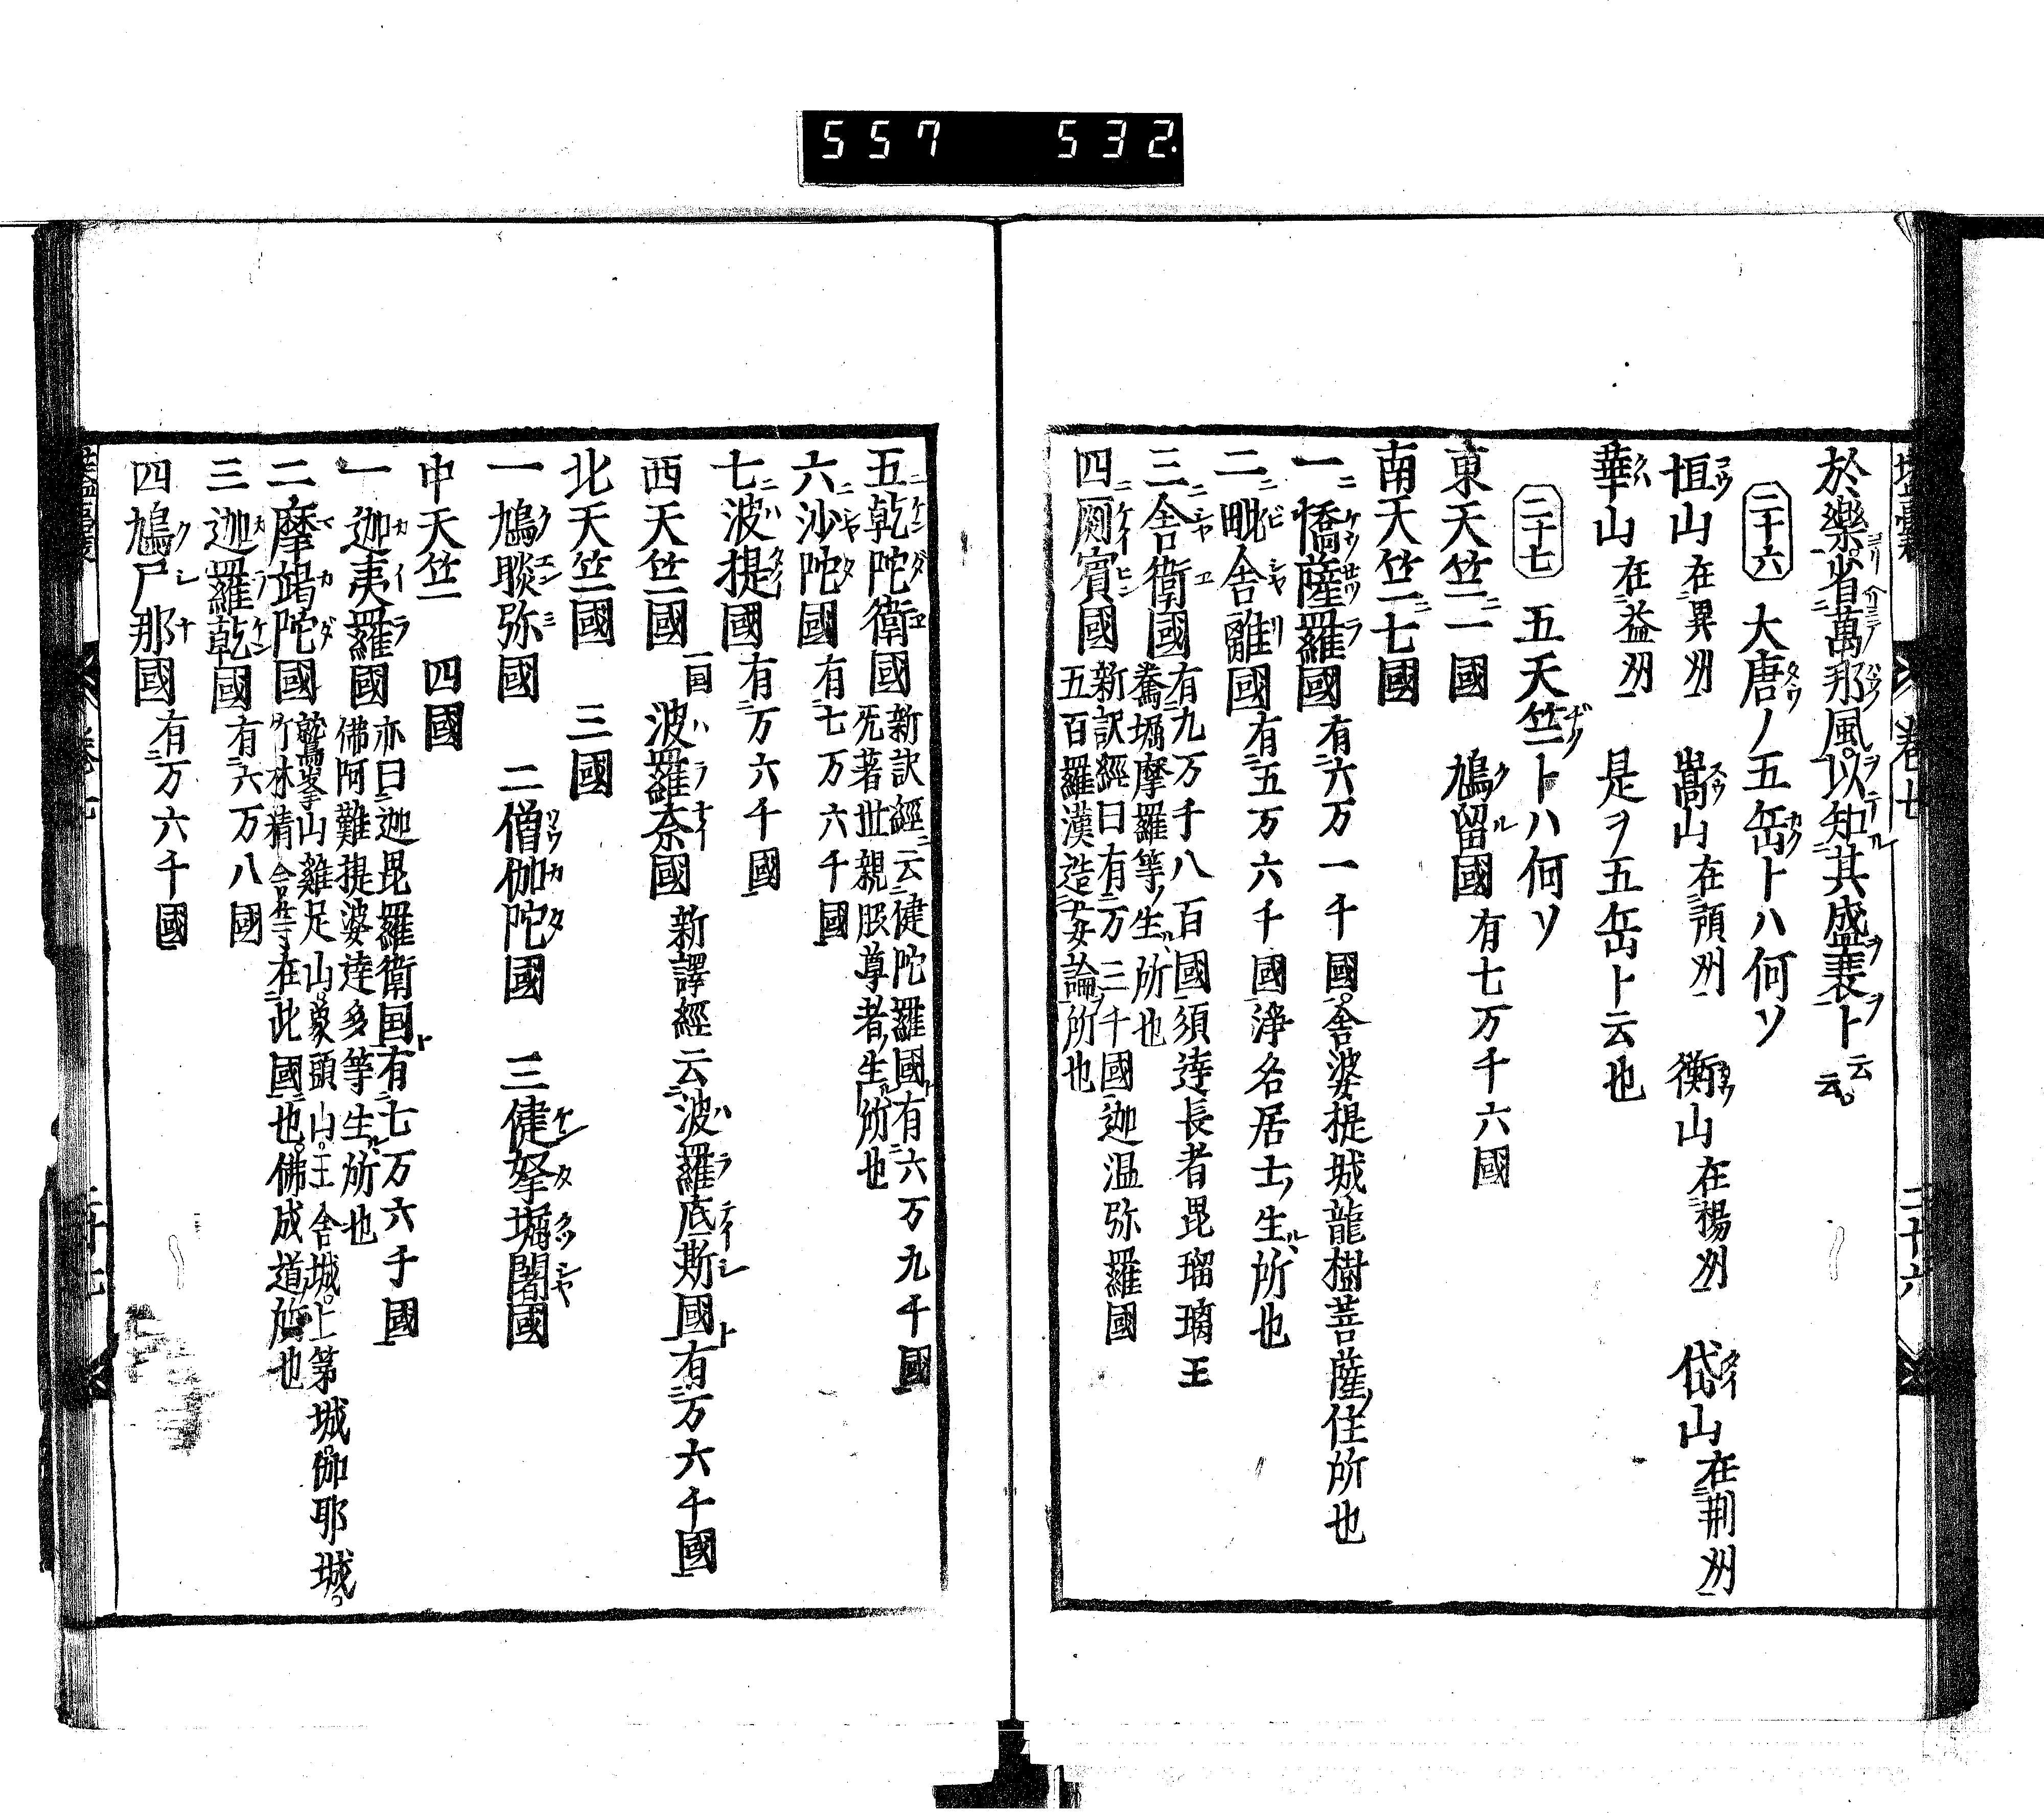 557 532.
於樂省萬那風以知其盛衰ヲト云云
二十六 大唐ノ五缶トハ何ソ
恒山在異州 嵩山在頴州 衡山在楊州 岱山在荆州
華山在益州 是ヲ五缶ト云也
二十七 五天竺トハ何ソ
東天竺一國 鳩留國有七万千六國
南天竺七國
一憍薩羅國有六万一千國舍婆提城龍樹菩薩住所也
二毗舍離國有五万六千國淨名居士生所也
三舍衛國有九万千八百國須逹長者毘瑠璃王
鴦堀摩羅等生所也
四罽賓國新訳經曰有二万三千國迦温弥羅國
五百羅漢造婆論所也
五乾陀衛國新訳經云健陀羅國有六万九千國
旡著世親脇尊者生所也
六沙陀國有七万六千國
七波提國有二万六千國
西天竺國一国 波羅奈國新譯經云波羅底斯國ト有二万六千國
北天竺國 三國
一鳩睒弥國 二僧伽陀國 三健拏堀闍國
中天竺 四國
一迦夷羅國亦曰迦毘羅衛国ト有七万六千國
佛阿難提婆逹多等生所也
二摩竭陀國鷲峯山雞足山象頭山王舍城上第城伽耶城
竹林精舍等在此國也佛成道所也
三迦羅乾國有六万八國
四鳩尸那國有二万六千國
卷七 二十六
卷七 二十七